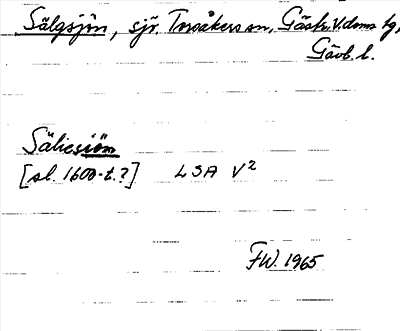 Sälgsjön, sjö. Torsåkers sn, Gästr. V. doms tg,
Gävl. l.
Säliesiöm
[sl. 1600-t.?] LSA V²
FW. 1965